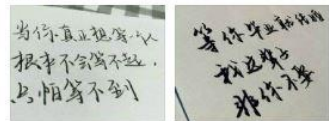 当你真正想等一个人
根本不会等不起，
只怕等不到
等你毕业就结婚
我这辈子
非你不娶